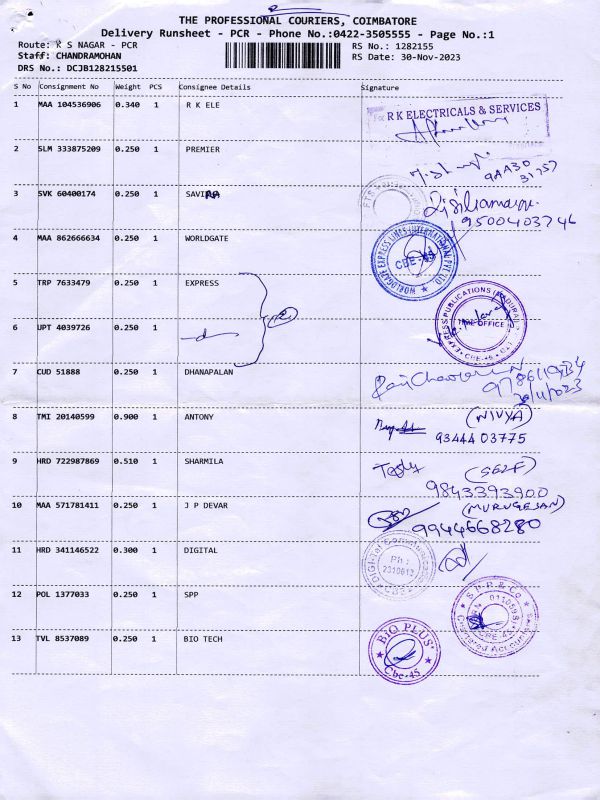 THE PROFESSIONAL COURIERS, COIMBATORE
Delivery Runsheet - PCR - Phone No.:0422-3505555 - Page No.:1
Route: R S NAGAR - PCR
RS No.: 1282155
Staff: CHANDRAMOHAN
RS Date: 30-Nov-2023
DRS No.: DCJB128215501
S No Consignment No Weight PCS Consignee Details Signature
1 MAA 104536906 0.340 1 R K ELE
For R K ELECTRICALS & SERVICES
2 SLM 333875209 0.250 1 PREMIER
9AA30
31757
3 SVK 60400174 0.250 1 SAVIRA
9500403746
4 MAA 862666634 0.250 1 WORLDGATE
WORLDGATE EXPRESS LINES INTERNATIONAL PVT LTD
CBE-45
5 TRP 7633479 0.250 1 EXPRESS
2
EXPRESS PUBLICATIONS (MADURAI)
TIME OFFICE
CBE-45
6 UPT 4039726 0.250 1
7 CUD 51888 0.250 1 DHANAPALAN
30/11/2023
8 TMI 20140599 0.900 1 ANTONY
(NIVYA)
93444 03775
9 HRD 722987869 0.510 1 SHARMILA
(SELF)
9843393900
10 MAA 571781411 0.250 1 J P DEVAR
(MURUGESAN)
9944668280
11 HRD 341146522 0.300 1 DIGITAL
Ph:
12 POL 1377033 0.250 1 SPP
S P P & Co
Chartered Accountants
CBE-45
13 TVL 8537089 0.250 1 BIO TECH
BIO PLUS
Cbe-45